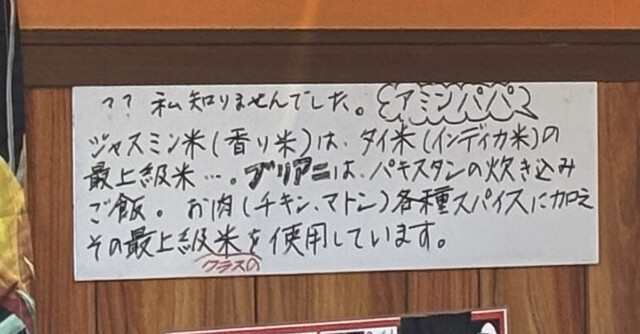 ？？ 私知りませんでした。アミンパパ
ジャスミン米(香り米)は、タイ米(インディカ米)の
最上級米…。ブリアニは、パキスタンの炊き込み
ご飯。お肉(チキン、マトン)各種スパイスに加え
その最上級米を使用しています。
クラスの